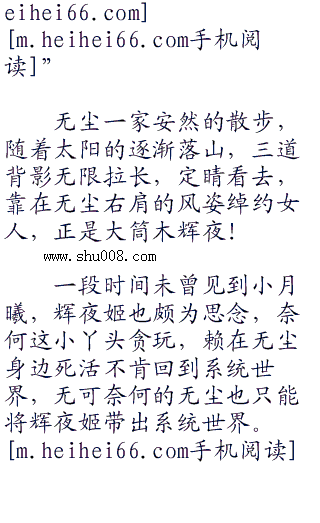 eihei66.com]
[m.heihei66.com手机阅
读]”
无尘一家安然的散步，
随着太阳的逐渐落山，三道
背影无限拉长，定晴看去，
靠在无尘右肩的风姿绰约女
人，正是大筒木辉夜！
www.shu008.com
一段时间未曾见到小月
曦，辉夜姬也颇为思念，奈
何这小丫头贪玩，赖在无尘
身边死活不肯回到系统世
界，无可奈何的无尘也只能
将辉夜姬带出系统世界。
[m.heihei66.com手机阅读]